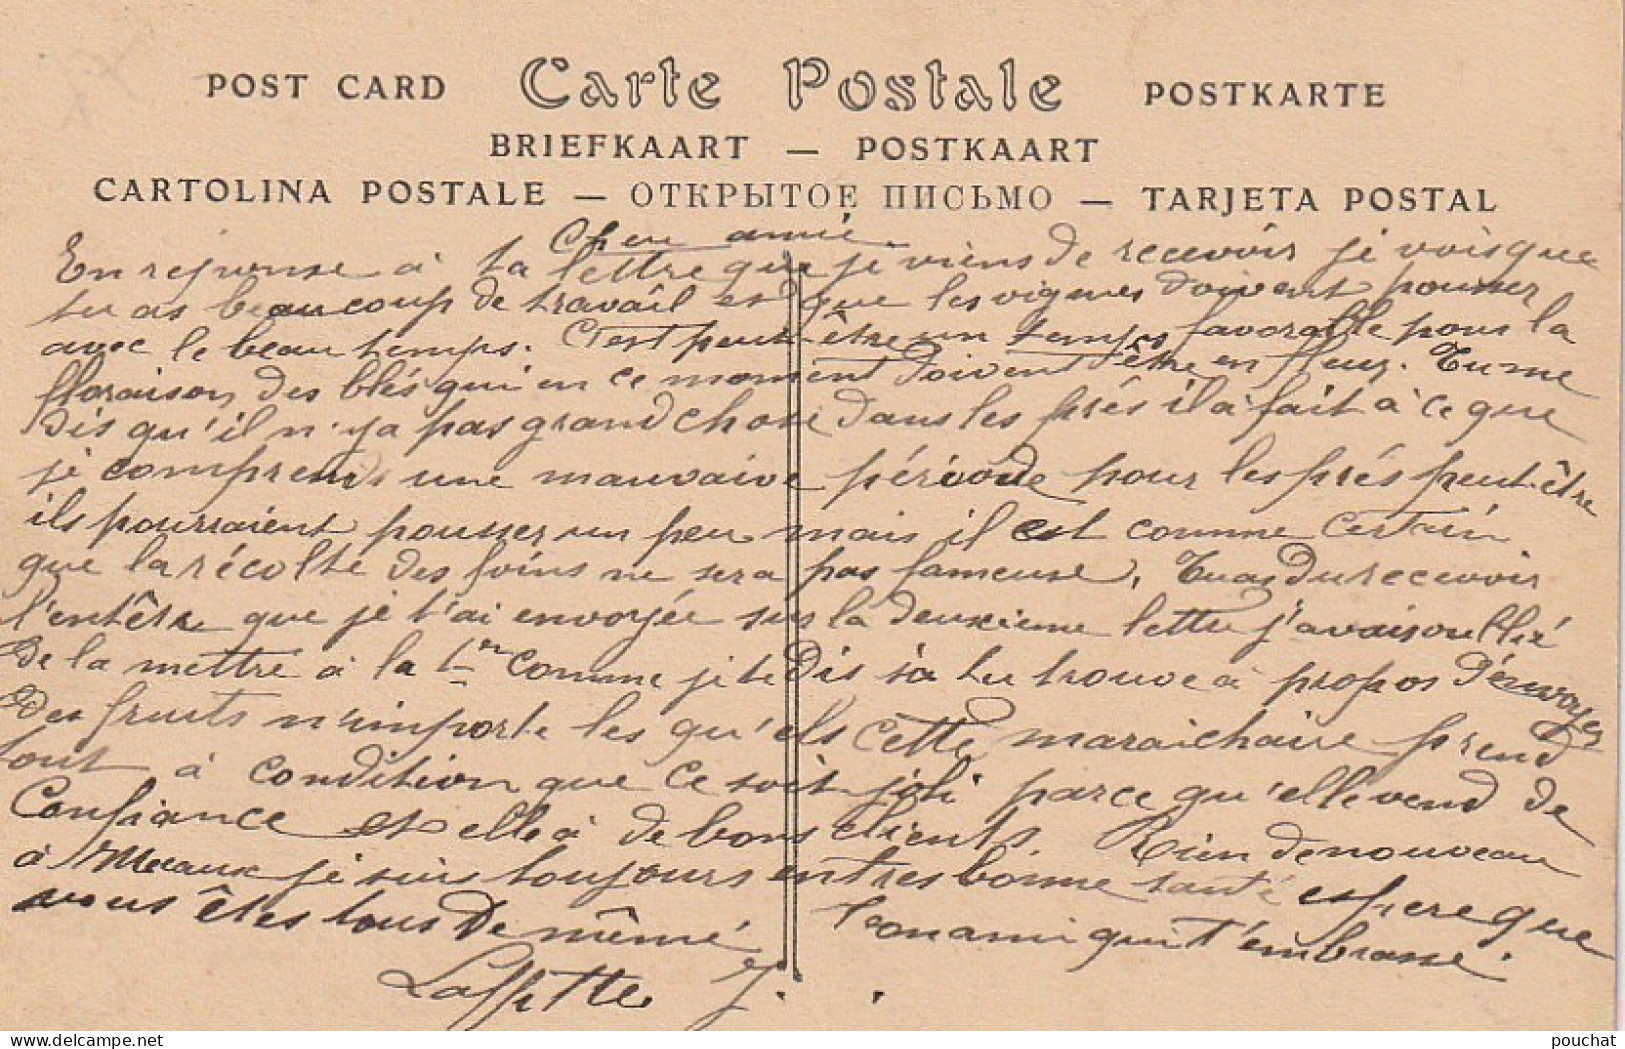 POST CARD Carte Postale POSTKARTE
BRIEFKAART — POSTKAART
CARTOLINA POSTALE — ОТКРЫТОЕ ПИСЬМО — TARJETA POSTAL
Cher amie
En réponse à ta lettre que je viens de recevoir je vois que
tu as beaucoup de travail et que les vignes doivent pousser
avec le beau temps. C'est peut-être un temps favorable pour la
floraison des blés qui en ce moment doivent être en fleur. Tu me
dis qu'il n'y a pas grand chose dans les prés il a fait à ce que
je comprends une mauvaise période pour les prés peut-être
ils pourraient pousser un peu mais il est comme certain
que la récolte des foins ne sera pas fameuse. Tu as du recevoir
l'entête que je t'ai envoyée sur la deuxième lettre j'avais oublié
de la mettre à la 1re comme je te dis si tu trouve à propos d'envoyer
des fruits n'importe les qu'els cette maraichaire prend
tout à condition que ce soit joli parce qu'elle vend de
Confiance et elle à de bons clients. Rien de nouveau
à Meaux je suis toujours en tres bonne santé espere que
vous êtes tous de même ton ami qui t'embrasse.
Laffitte J.
pouchat